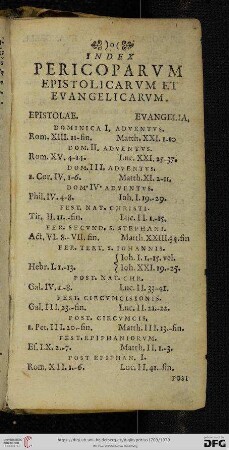 INDEX
PERICOPARVM
EPISTOLICARVM ET
EVANGELICARVM.
EPISTOLAE. EVANGELIA,
DOMINICA I. ADVENTVS.
Rom. XIII. 11-fin. Matth. XXI. 1-10
DOM. II. ADVENTVS.
Rom. XV. 4-13. Luc. XXI. 25-37.
DOM. III. ADVENTVS.
1. Cor. IV. 1-6. Matth. XI. 2-11.
DOM. IV. ADVENTVS.
Phil. IV. 4-8. Joh. I. 19-29.
FEST. NAT. CHRISTI.
Tit. II. 11.-fin. Luc. II. 1-15.
FER. SECVND. S. STEPHANI.
Act. VI. 8.-VII. fin. Matth. XXIII. 34-fin
FER. TERT. S. JOHANNIS.
Joh. I. 1-15. vel.
Hebr. I. 1-13. Joh. XXI. 19-25.
POST. NAT. CHR.
Gal. IV. 1-8. Luc. II. 33-41.
FEST. CIRCVMCISIONIS.
Gal. III. 23.-fin. Luc. II. 21-22.
POST. CIRCVMCIS.
1. Pet. III. 20.-fin. Matth. III. 13.-fin.
FEST. EPIPHANIORVM.
Es. LX. 1.-7. Matth. II. 1-
POST EPIPHAN. I.
Rom. XII. 1.-6. Luc. II. 41. fin.
POST
DFG